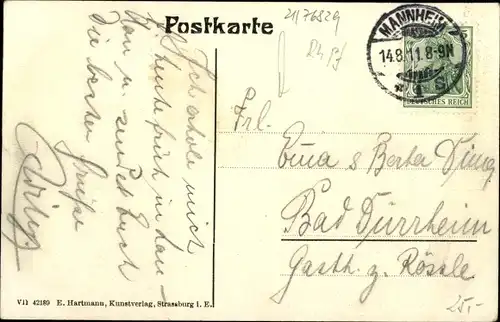 Postkarte
21/76829
MANNHEIM 7
14.8.11.8-9N
DEUTSCHES REICH
Ich erhole mich
heute früh in
u. sendet Euch
die besten Grüße
Frl.
u. Berta
Bad Dürrheim
Gasth. z. Rössle
25,-
V11 42189 E. Hartmann, Kunstverlag, Strassburg i. E.